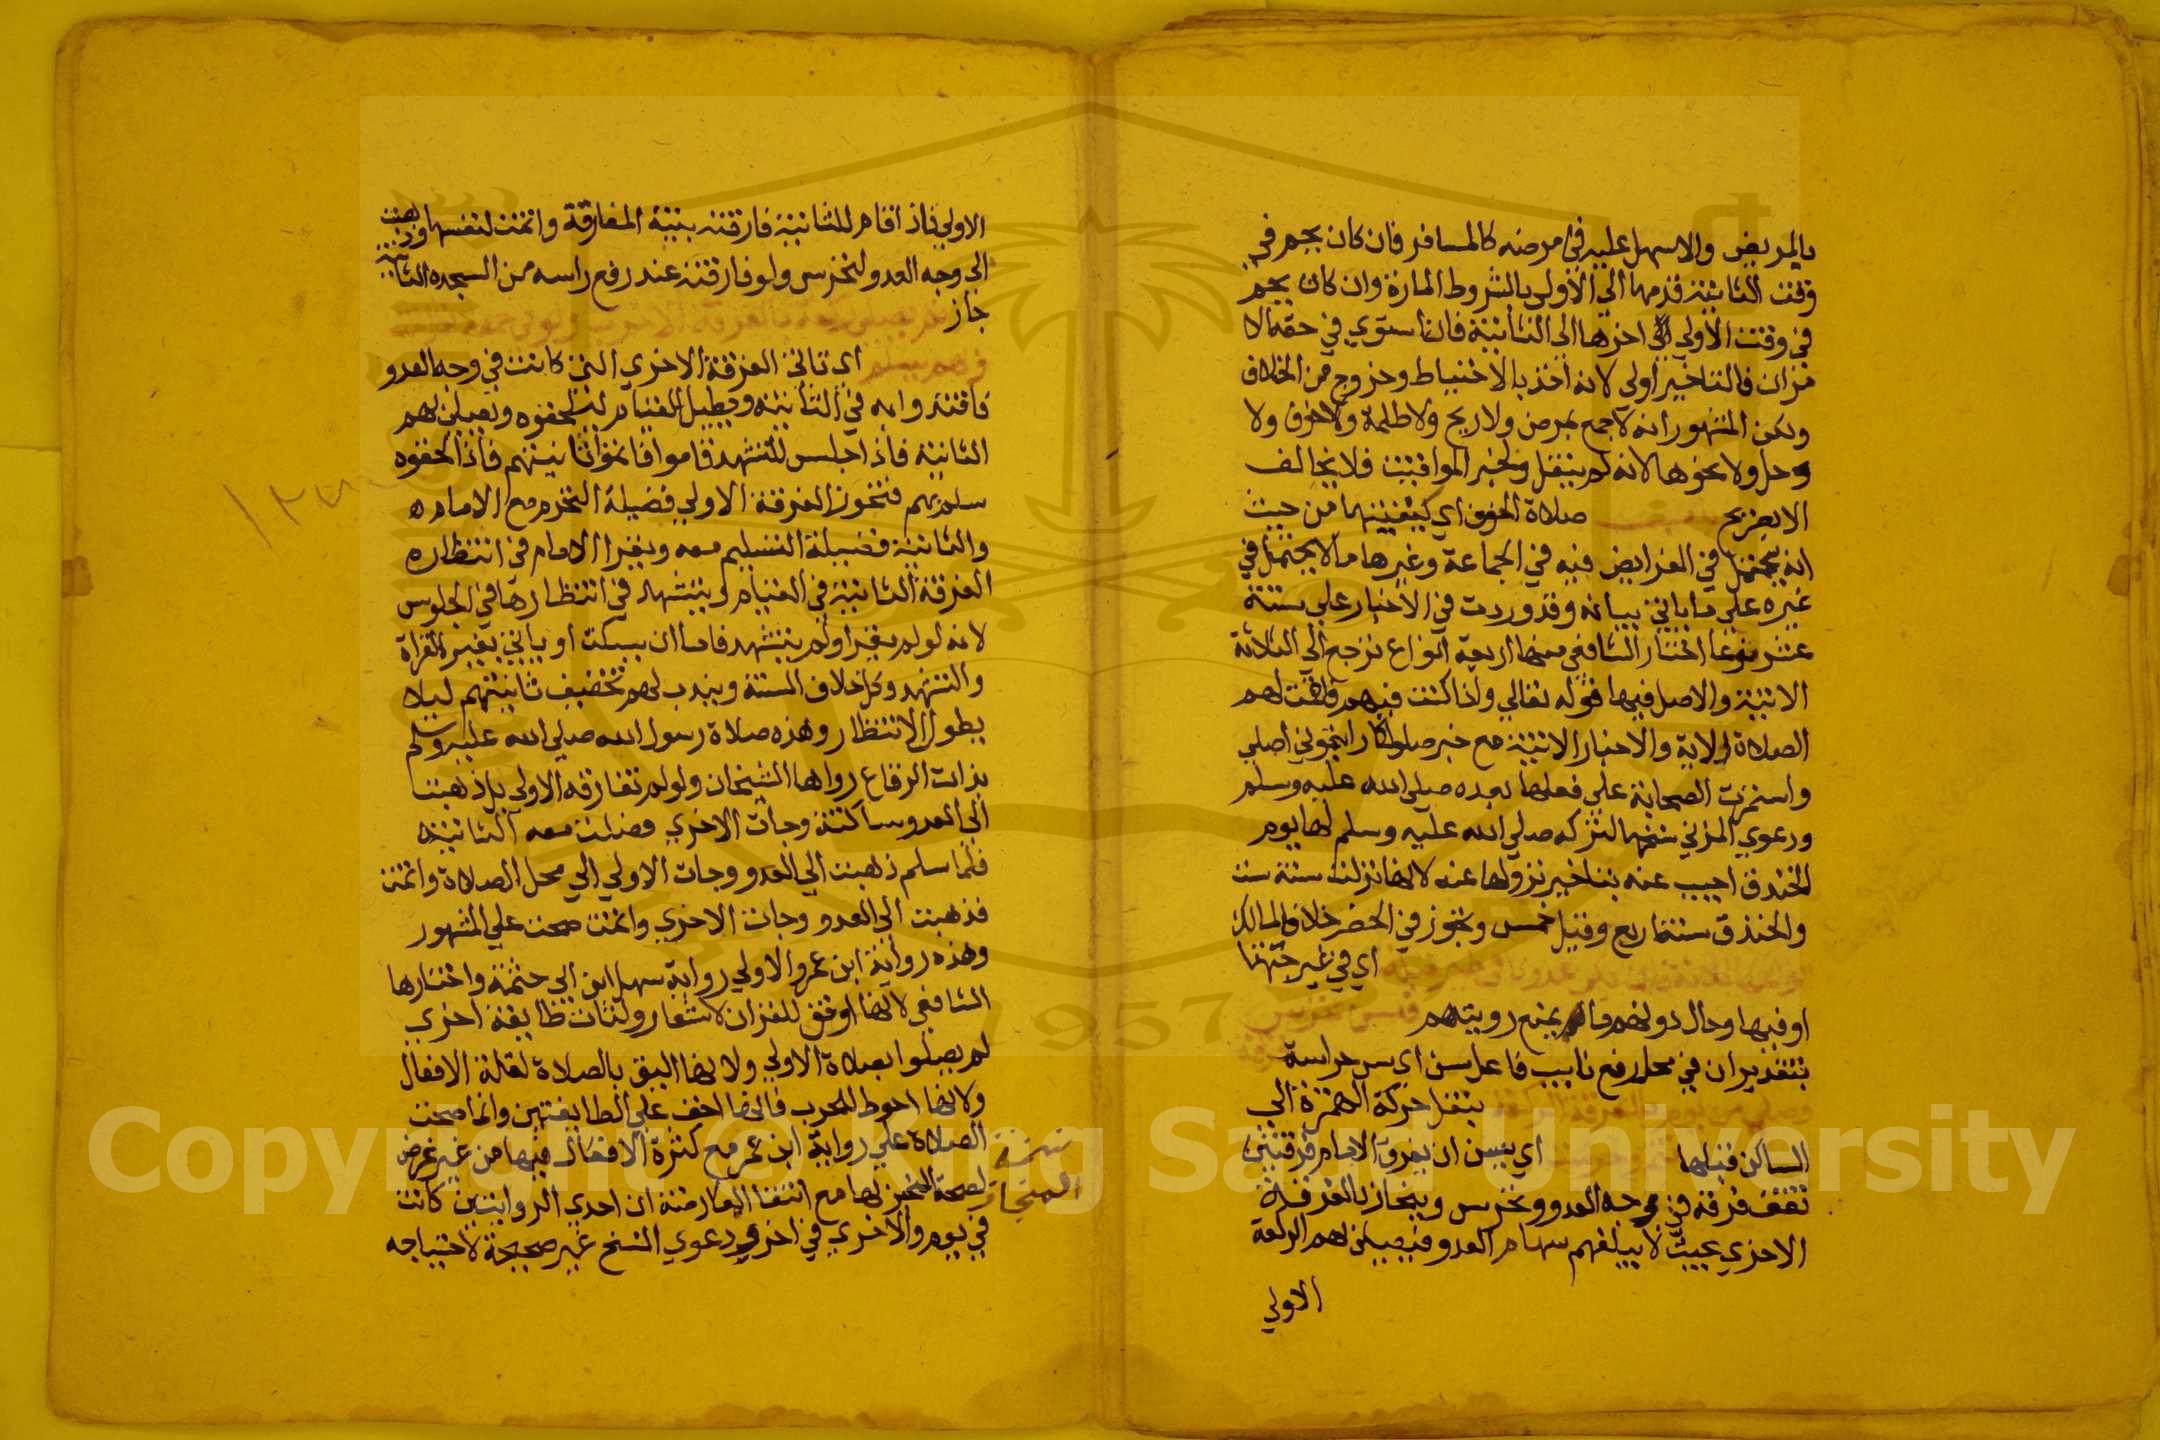 بالمريض والاسهل عليه في مرضه كالمسافر فان كان يحم في
وقت الثانية قدمها الي الاولي بالشروط المارة وان كان يحم
في وقت الاولي اخرها الي الثانية فان استوي في حقه الا
مران فالتاخير اولي لانه اخذ بالاحتياط وخروج من الخلاف
ولكن المشهور انه لا جمع بمرض ولا ريح ولا ظلمة ولا خوف ولا
وحل ولا نحوها لانه لم ينقل ولخبر المواقيت فلا يخالف
الا بصريح صلاة الخوف اي كيفيتها من حيث
انه يحتمل في الفرايض فيه في الجماعة وغيرها ما لا يحتمل في
غيره علي ما ياتي بيانه وقد وردت في الاخبار علي ستة
عشر نوعا اختار الشافعي منها اربعة انواع ترجع الي الثلاثة
الاتية والاصل فيها قوله تعالي واذا كنت فيهم فاقمت لهم
الصلاة الاية والاخبار الاتية مع خبر صلوا كما رايتموني اصلي
واستمرت الصحابة علي فعلها بعده صلي الله عليه وسلم
ودعوي المزني نسخها لتركه صلي الله عليه وسلم لها يوم
الخندق اجيب عنه بتاخير نزولها عنه لانها نزلت سنة ست
والخندق سنة اربع وقيل خمس وتجوز في الحضر خلافا لمالك
اي في غير جهتها
او فيها وحال دونهم ما يمنع رويتهم
بتقدير ان في محل رفع نايب فاعل سن اي سن حراسة
بنقل حركة الهمزة الي
الساكن قبلها اي يسن ان يفرق الامام فرقتين
تقف فرقة في وجه العدو وتحرس وينحاز بالفرقة
الاخري بحيث لا يبلغهم سهام العدو فيصلي لهم الركعة
الاولي
الاولي فاذا قام للثانية فارقته بنية المفارقة واتمت لنفسها وذهبت
الي وجه العدو لتحرس ولو فارقته عند رفع راسه من السجدة الثانية
جاز
ثم يسلم اي تاتي الفرقة الاخري التي كانت في وجه العدو
فاقتدوا به في الثانية ويطيل القيام ليلحقوه ويصلي بهم
الثانية فاذا جلس للتشهد قاموا فاتموا ثانيتهم فاذا لحقوه
سلم بهم فتحوز الفرقة الاولي فضيلة التحرم مع الامام
والثانية فضيلة التسليم معه ويقرا الامام في انتظاره
الفرقة الثانية في القيام ويتشهد في انتظارها في الجلوس
لانه لو لم يقرا ولم يتشهد فاما ان يسكت او ياتي بغير القراة
والتشهد وكل خلاف السنة ويندب لهم تخفيف ثانيتهم ليلا
يطول الانتظار وهذه صلاة رسول الله صلي الله عليه وسلم
بذات الرقاع رواها الشيخان ولو لم تفارقه الاولي بل ذهبت
الي العدو ساكتة وجات الاخري فصلت معه الثانية
فلما سلم ذهبت الي العدو وجات الاولي الي محل الصلاة واتمت
فذهبت الي العدو وجات الاخري واتمت صحت علي المشهور
وهذه رواية ابن عمر والاولي رواية سهل ابن ابي حثمة واختارها
الشافعي لانها اوفق للقران لاشعار ولتات طايفة اخري
لم يصلوا بصلاة الاولي ولانها اليق بالصلاة لقلة الافعال
ولانها احوط للحرب فانها اخف علي الطايفتين وانما صحت
الصلاة علي رواية ابن عمر مع كثرة الافعال فيها من غير غرض
لصحة الخبر لها مع انتفا المعارضة ان احدي الروايتين كانت
في يوم والاخري في اخر ودعوي النسخ غير صحيحة لاحتياجه
Copyright © King Saud University
1957